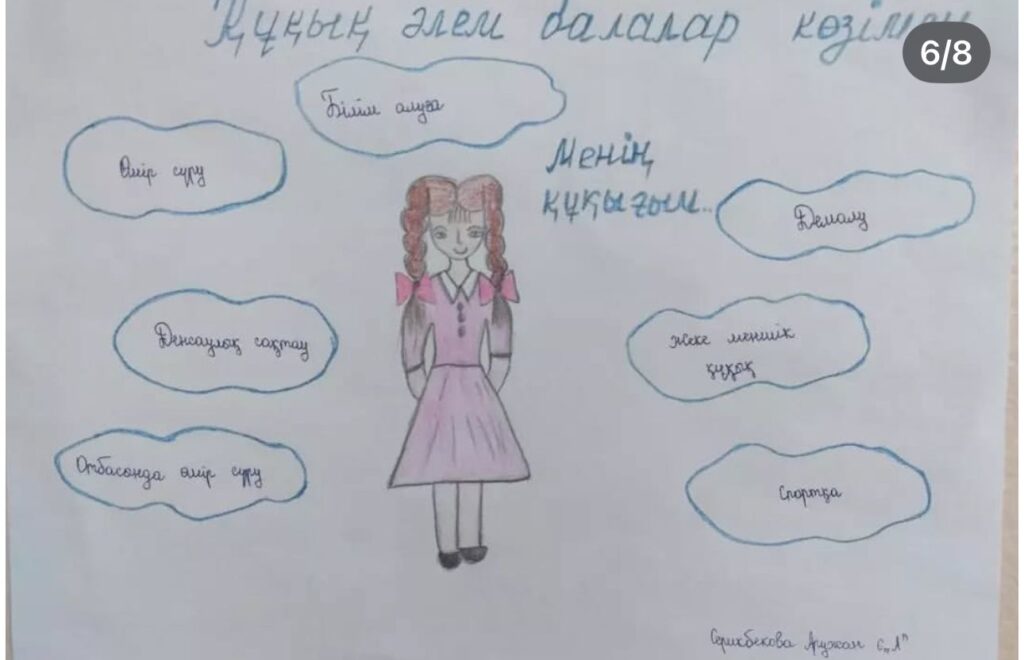 Құқық әлем балалар көзімен
6/8
Білім алуға
Өмір сүру
Менің
құқығым...
Демалу
Денсаулық сақтау
Жеке меншік
құқық
Отбасында өмір сүру
Спортқа
Серикбекова Аружан 6 "А"